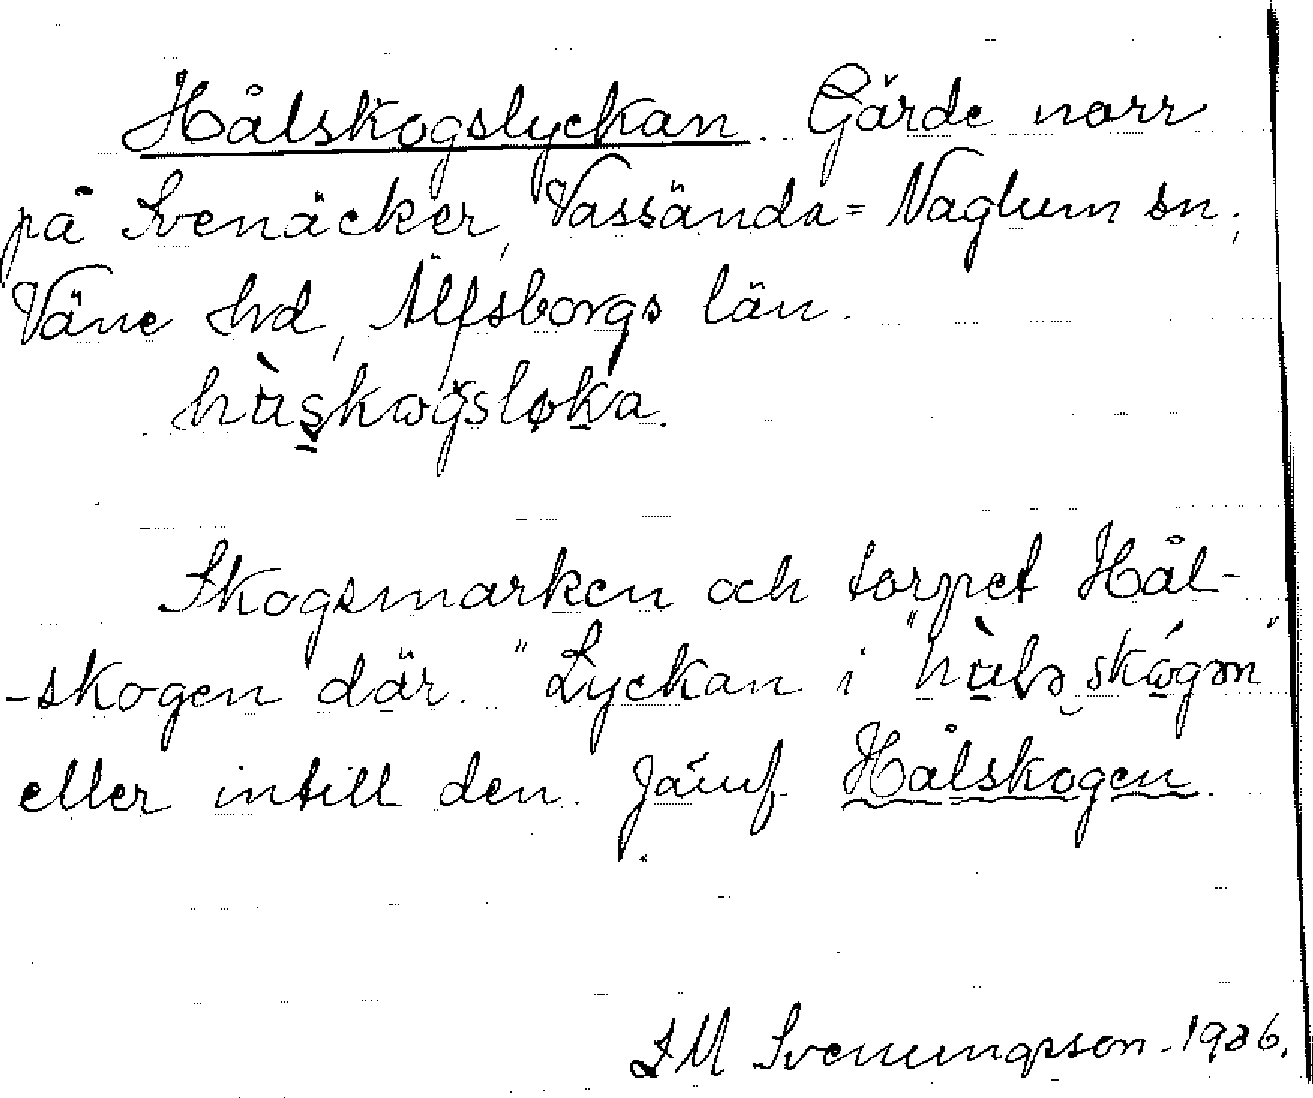 Hålskogslyckan. Gärde norr
på Svenäcker, Vassända=Naglum sn,
Väne hd, Älfsborgs län.
hùskogsløka.
Skogsmarken och torpet Hål-
-skogen där. "Lyckan i "hùlə skógən"
eller intill den. Jämf. Hålskogen.
Svenungsson 1936.